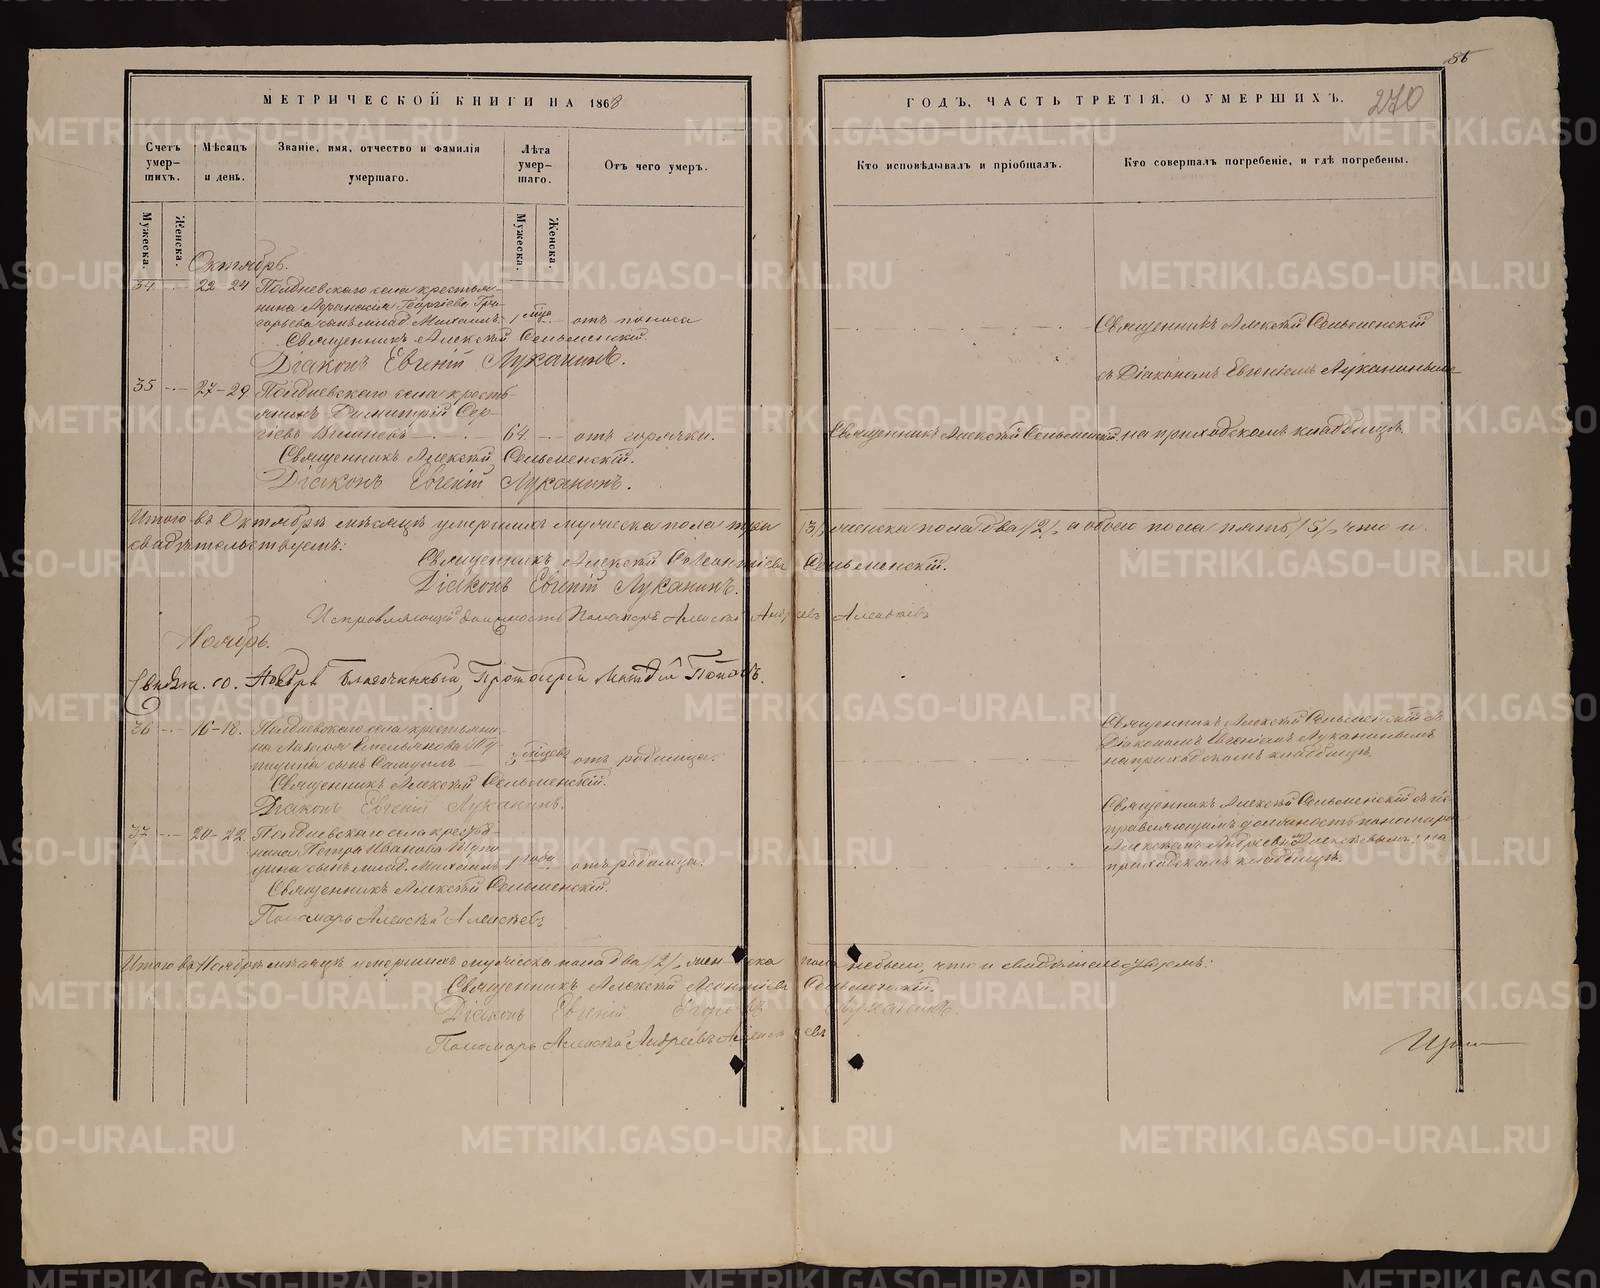 86
МЕТРИЧЕСКОЙ КНИГИ НА 1868
ГОДЪ, ЧАСТЬ ТРЕТІЯ, О УМЕРШИХЪ.
270
Счетъ умер-шихъ.
Мѣсяцъ и день.
Званіе, имя, отчество и фамилія умершаго.
Лѣта умер-шаго.
Отъ чего умеръ.
Кто исповѣдывалъ и пріобщалъ.
Кто совершалъ погребеніе, и гдѣ погребены.
Мужеска.
Женска.
Мужеска.
Женска.
Октябрь.
34 22-24 Полдневскаго села крестья-
нина Георгіева Гри-
горьева сынъ млад. Михаилъ. 1 мца отъ поноса
Священникъ Алексѣй Сельменскій.
Діаконъ Евгеній Луканинъ.
Священникъ Алексѣй Сельменскій
съ Діакономъ Евгеніемъ Луканинымъ
35 27-29 Полдневскаго села кресть-
янинъ Димитрій Сер-
гіевъ 64. отъ горячки.
Священникъ Алексѣй Сельменскій. на приходскомъ кладбищѣ.
Священникъ Алексѣй Сельменскій.
Діаконъ Евгеній Луканинъ.
Итого въ Октябрѣ мѣсяцѣ умершихъ мужеска пола три /3/, женска пола два /2/, а обоего пола пять /5/, что и
свидѣтельствуемъ:
Священникъ Алексѣй Леонтіевъ Сельменскій.
Діаконъ Евгеній Луканинъ.
Исправляющій должность Пономаря Алексѣй Андреевъ Алексѣевъ
Ноябрь.
10. Ноября Благочинный, Протоіерей Поповъ.
36 16-18. Полдневскаго села крестьяни-
на Емельянова
сынъ Самуилъ 3 мѣсяцевъ отъ родимца.
Священникъ Алексѣй Сельменскій.
Діаконъ Евгеній Луканинъ.
Священникъ Алексѣй Сельменскій съ
Діакономъ Евгеніемъ Луканинымъ
на приходскомъ кладбищѣ.
37 20-22. Полдневскаго села кресть-
нина Петра Иванова
сынъ млад. Михаилъ 1 года отъ родимца.
Священникъ Алексѣй Сельменскій.
Пономарь Алексѣй Алексѣевъ
Священникъ Алексѣй Сельменскій съ ис-
правляющимъ должность пономаря
Алексѣемъ Андреевымъ Алексѣевымъ, на
приходскомъ кладбищѣ.
Итого въ Ноябрѣ мѣсяцѣ умершихъ мужеска пола два /2/, женска пола небыло, что и свидѣтельствуемъ:
Священникъ Алексѣй Леонтіевъ Сельменскій.
Діаконъ Евгеній Луканинъ.
Пономарь Алексѣй Андреевъ Алексѣевъ
METRIKI.GASO-URAL.RU